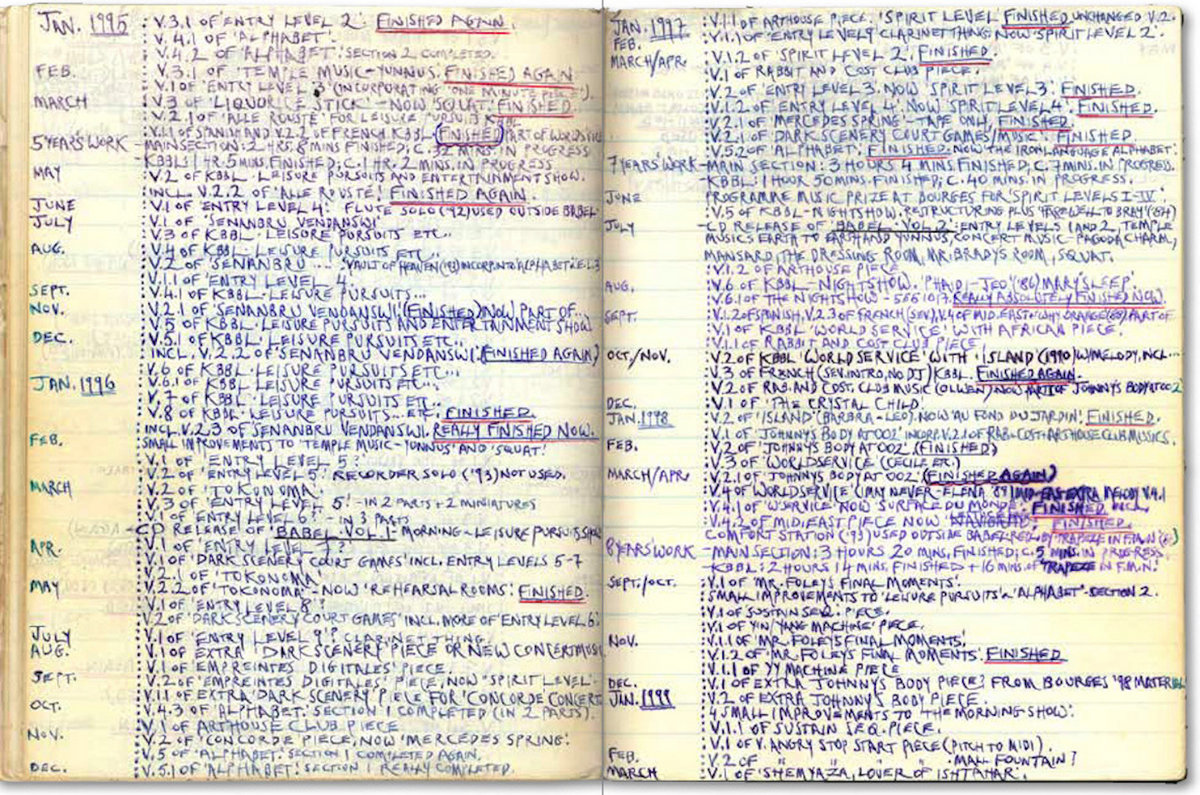 JAN. 1995 : V.3.1 OF 'ENTRY LEVEL 2'. FINISHED AGAIN.
: V.4.1 OF 'ALPHABET'.
: V.4.2 OF 'ALPHABET'. SECTION 2 COMPLETED.
FEB. : V.3.1 OF 'TEMPLE MUSIC-YUNNUS'. FINISHED AGAIN.
: V.1 OF 'ENTRY LEVEL 3' (INCORPORATING 'ONE MINUTE PIECE').
MARCH : V.3 OF 'LIQUORICE STICK' - NOW 'SQUAT'. FINISHED.
: V.2.1 OF 'ALLE ROUSTÉ' FOR LEISURE PURSUITS KBBL
: V.1.1 OF SPANISH AND V.2.2 OF FRENCH KBBL (FINISHED) PART OF
5 YEARS WORK - MAIN SECTION: 2 HRS. 8 MINS FINISHED; C. 32 MINS. IN PROGRESS
KBBL: 1 HR. 5 MINS. FINISHED; C. 1 HR. 2 MINS. IN PROGRESS
MAY : V.2 OF KBBL. LEISURE PURSUITS AND ENTERTAINMENT SHOW.
INCL. V.2.2 OF 'ALLE ROUSTÉ'. FINISHED AGAIN.
JUNE : V.1 OF 'ENTRY LEVEL 4'. FLUTE SOLO ('92) USED OUTSIDE BABEL.
JULY : V.1 OF 'SENANBRU VENDANSWI'.
: V.3 OF KBBL. LEISURE PURSUITS ETC..
AUG. : V.4 OF KBBL. LEISURE PURSUITS ETC...
: V.2 OF 'SENANBRU.... VAULT OF HEAVEN
: V.1.1 OF 'ENTRY LEVEL 4.
SEPT. : V.4.1 OF KBBL. LEISURE PURSUITS...
NOV. : V.2.1 OF 'SENANBRU VENDANSWI'. (FINISHED) NOW PART OF...
: V.5 OF KBBL. LEISURE PURSUITS AND ENTERTAINMENT SHOW
DEC. : V.5.1 OF KBBL. LEISURE PURSUITS ETC...
INCL. V.2.2 OF 'SENANBRU VENDANSWI'. (FINISHED AGAIN)
: V.6 OF KBBL. LEISURE PURSUITS ETC...
JAN. 1996 : V.6.1 OF KBBL. LEISURE PURSUITS ETC...
: V.7 OF KBBL. LEISURE PURSUITS ETC...
: V.8 OF KBBL. LEISURE PURSUITS... ETC. FINISHED.
INCL. V.2.3 OF SENANBRU VENDANSWI. REALLY FINISHED NOW.
FEB. SMALL IMPROVEMENTS TO 'TEMPLE MUSIC-YUNNUS' AND 'SQUAT'.
: V.1 OF 'ENTRY LEVEL 5'?
: V.2 OF 'ENTRY LEVEL 5'. RECORDER SOLO ('93) NOT USED.
MARCH : V.2 OF 'TOKONOMA'.
: V.3 OF 'ENTRY LEVEL 5'. - IN 2 PARTS + 2 MINIATURES
: V.1 OF 'ENTRY LEVEL 6'. - IN 3 PARTS
- CD RELEASE OF 'BABEL VOL. 1' - MORNING - LEISURE PURSUITS SHOW
APR. : V.1 OF 'ENTRY LEVEL 7'?
: V.1 OF 'DARK SCENERY COURT GAMES' INCL. ENTRY LEVELS 5-7
: V.2.1 OF 'TOKONOMA'
MAY : V.2.2 OF 'TOKONOMA' - NOW 'REHEARSAL ROOMS'. FINISHED.
: V.1 OF 'ENTRY LEVEL 8'?
: V.2 OF 'DARK SCENERY COURT GAMES' INCL. MORE OF 'ENTRY LEVEL 6'.
JULY : V.1 OF 'ENTRY LEVEL 9'? CLARINET THING.
AUG. : V.1 OF EXTRA 'DARK SCENERY' PIECE OR NEW CONCERT MUSIC
: V.1 OF 'EMPREINTES DIGITALES' PIECE.
SEPT. : V.2 OF 'EMPREINTES DIGITALES' PIECE, NOW 'SPIRIT LEVEL'.
: V.1.1 OF EXTRA 'DARK SCENERY' PIECE FOR 'CONCORDE CONCERT'
OCT. : V.4.3 OF 'ALPHABET'. SECTION 1 COMPLETED (IN 2 PARTS).
: V.1 OF ARTHOUSE CLUB PIECE
NOV. : V.2 OF 'CONCORDE' PIECE, NOW 'MERCEDES SPRING'.
: V.5 OF 'ALPHABET'. SECTION 1 COMPLETED AGAIN.
DEC. : V.5.1 OF 'ALPHABET'. SECTION 1 REALLY COMPLETED.
JAN. 1997 : V.1.1 OF ARTHOUSE PIECE. 'SPIRIT LEVEL' FINISHED UNCHANGED V.2.
FEB. : V.1.1 OF 'ENTRY LEVEL 9' CLARINET THING NOW 'SPIRIT LEVEL 2'.
MARCH/APR. : V.1.2 OF 'SPIRIT LEVEL 2'. FINISHED.
: V.1 OF RABBIT AND COST CLUB PIECE.
: V.2 OF 'ENTRY LEVEL 3'. NOW 'SPIRIT LEVEL 3'. FINISHED.
: V.1.2 OF 'ENTRY LEVEL 4'. NOW 'SPIRIT LEVEL 4'. FINISHED.
: V.2.1 OF 'MERCEDES SPRING' - TAPE ONLY. FINISHED.
: V.2.1 OF 'DARK SCENERY COURT GAMES/MUSIC'. FINISHED.
: V.5.2 OF 'ALPHABET'. FINISHED. NOW 'THE IRON LANGUAGE ALPHABET'.
7 YEARS' WORK - MAIN SECTION: 3 HOURS 4 MINS. FINISHED; C. 7 MINS. IN PROGRESS.
KBBL: 1 HOUR 50 MINS. FINISHED; C. 40 MINS. IN PROGRESS.
JUNE PROGRAMME MUSIC PRIZE AT BOURGES FOR 'SPIRIT LEVELS I-IV'.
: V.5 OF KBBL - NIGHTSHOW. RESTRUCTURING PLUS 'FAREWELL TO BREY' ('84)
JULY - CD RELEASE OF 'BABEL - VOL. 2': ENTRY LEVELS 1 AND 2, TEMPLE
MUSICS EARTH TO EARTH AND YUNNUS, CONCERT MUSIC - PAGODA CHARM,
MANSARD, THE DRESSING ROOM, MR. BRADY'S ROOM, SQUAT.
: V.1.2 OF ARTHOUSE PIECE
AUG. : V.6 OF KBBL - NIGHTSHOW. 'PHAIDI-JEO' ('86) 'MARY SLEEP'
: V.6.1 OF THE NIGHTSHOW - SEG 10 17. REALLY ABSOLUTELY FINISHED NOW.
SEPT. : V.1.2 OF SPANISH, V.2.3 OF FRENCH (SEV), V.4 OF MID. EAST + 'WHY ORANGE' PART OF
: V.1 OF KBBL 'WORLD SERVICE' WITH AFRICAN PIECE.
: V.1.1 OF RABBIT AND COST CLUB PIECE
OCT./NOV. : V.2 OF KBBL 'WORLD SERVICE' WITH 'ISLAND' (1990) W/MELODY, INCL...
: V.3 OF FRENCH (SEV. INTRO, NO DJ) KBBL. FINISHED AGAIN.
: V.2 OF RAB. AND COST. CLUB MUSIC (OLWEN) NOW PART OF JOHNNY'S BODY AT 002
DEC. : V.1 OF 'THE CRYSTAL CHILD'.
JAN. 1998 : V.2 OF 'ISLAND' (BARBARA-LEO), NOW 'AU FOND DU JARDIN'. FINISHED.
: V.1 OF 'JOHNNY'S BODY AT 002' INCORP. V.2.1 OF RAB. + COST + ARTHOUSE CLUB MUSICS.
FEB. : V.2 OF 'JOHNNY'S BODY AT 002' (FINISHED)
: V.3 OF WORLD SERVICE (CECILE ETC.)
MARCH/APR. : V.2.1 OF 'JOHNNY'S BODY AT 002' (FINISHED AGAIN)
: V.4 OF WORLDSERVICE (IMAN NEVER-ELENA '89) MID-EAST EXTRA MELODY V.4.1
: V.4.1 OF W'SERVICE' NOW 'SURFACE DU MONDE'. FINISHED INCL.
: V.4.2 OF MID. EAST PIECE NOW FINISHED.
COMFORT STATION ('93) USED OUTSIDE BABEL BY TRAPEZE IN F.M.N.
8 YEARS' WORK - MAIN SECTION: 3 HOURS 20 MINS. FINISHED; C. 5 MINS. IN PROGRESS.
- KBBL: 2 HOURS 14 MINS. FINISHED + 16 MINS. OF 'TRAPEZE IN F.M.N.'
SEPT./OCT. : V.1 OF 'MR. FOLEY'S FINAL MOMENTS'.
SMALL IMPROVEMENTS TO 'LEISURE PURSUITS' & 'ALPHABET' - SECTION 2.
: V.1 OF SUSTAIN SEQ. PIECE.
: V.1 OF 'YIN/YANG MACHINE' PIECE.
NOV. : V.1.1 OF 'MR. FOLEY'S FINAL MOMENTS'.
: V.1.2 OF 'MR. FOLEY'S FINAL MOMENTS'. FINISHED
: V.1.1 OF YY MACHINE PIECE
DEC. : V.1 OF EXTRA JOHNNY'S BODY PIECE? FROM BOURGES '98 MATERIAL
JAN. 1999 : V.2 OF EXTRA JOHNNY'S BODY PIECE.
4 SMALL IMPROVEMENTS TO 'THE MORNING SHOW'.
: V.1.1 OF SUSTAIN SEQ. PIECE.
: V.1 OF V. ANGRY STOP START PIECE (PITCH TO MIDI).
FEB. : V.2 OF " " " " " . MALL FOUNTAIN?
MARCH : V.1 OF 'SHEMYAZA, LOVER OF ISHTAHAR'.